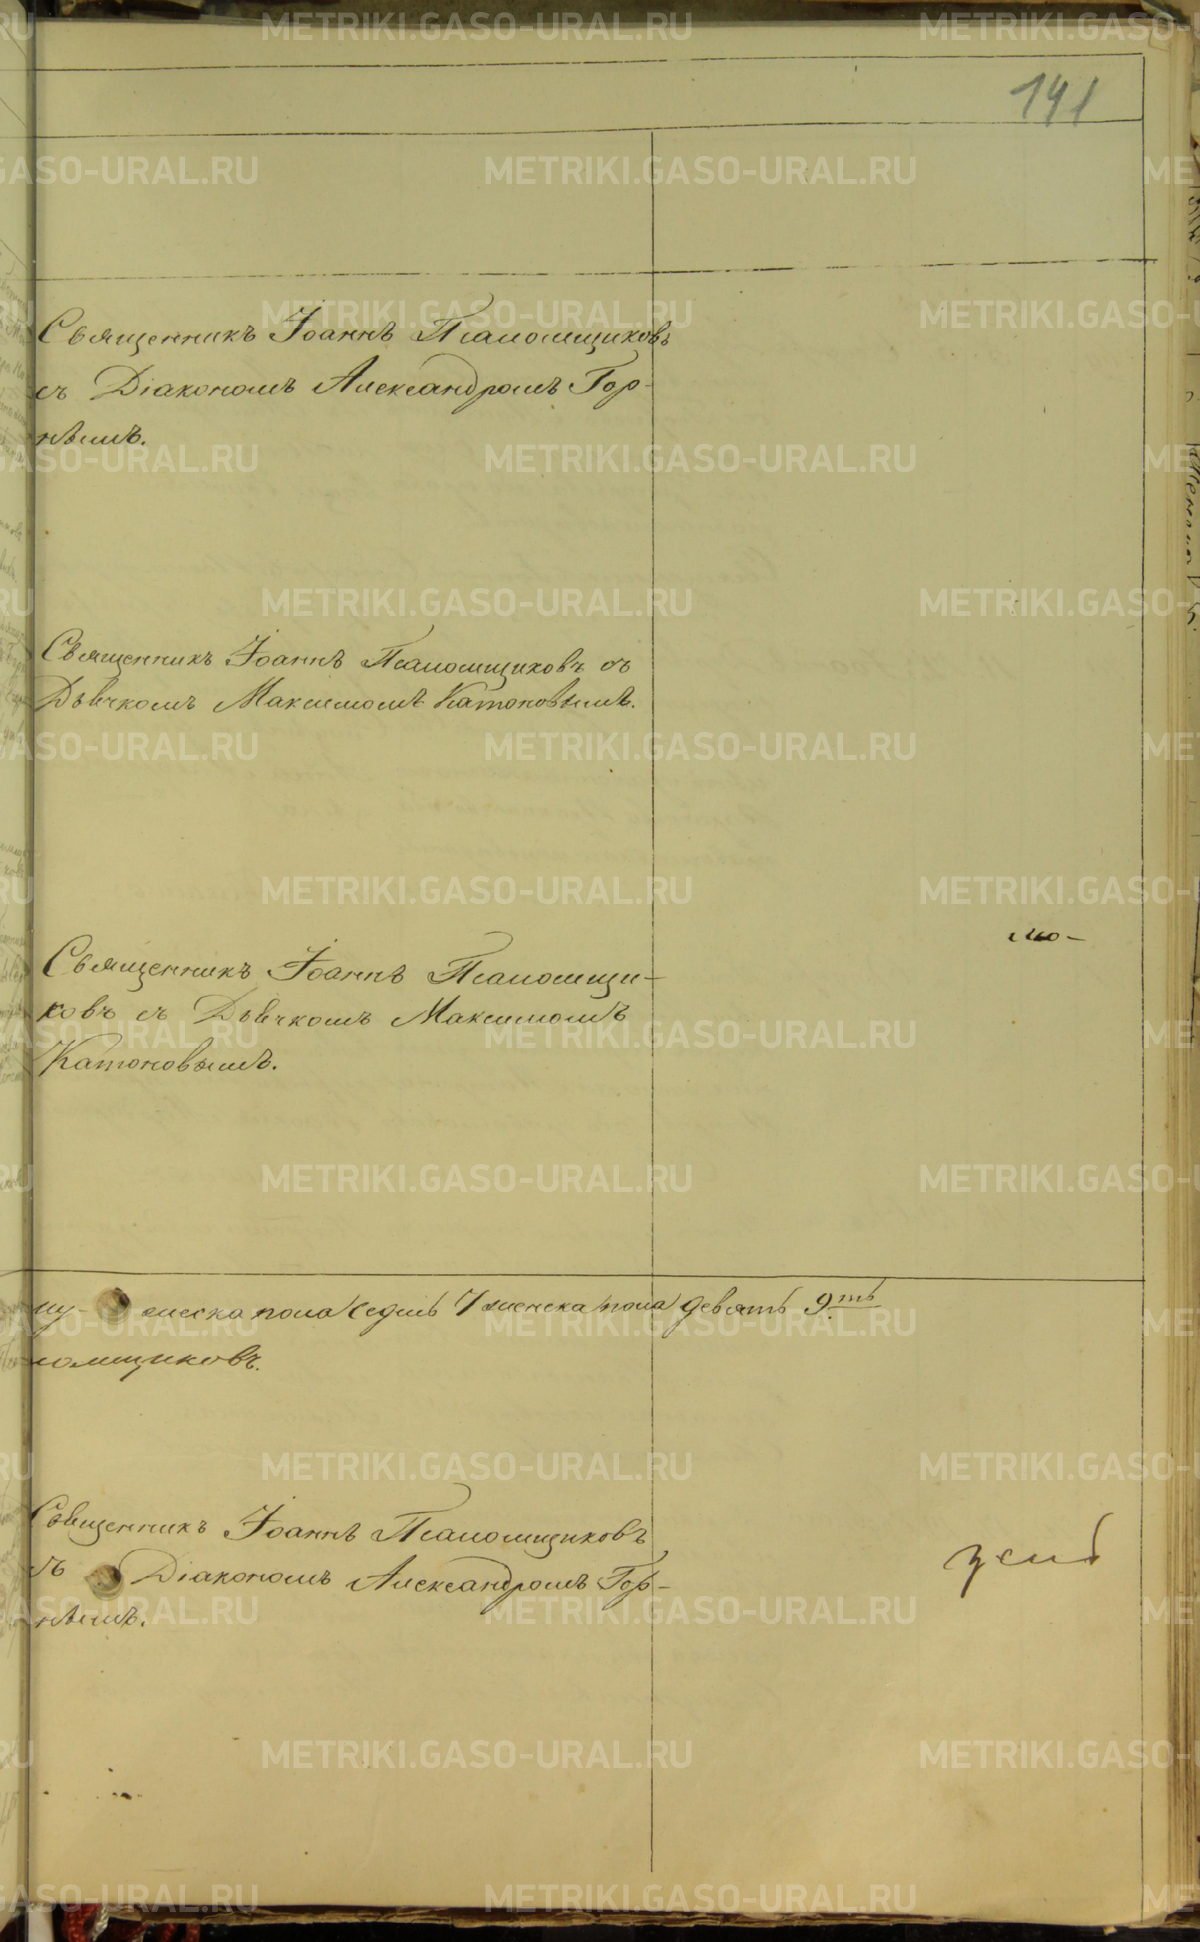 141
Священникъ Іоаннъ Псаломщиковъ
съ Діакономъ Александромъ Гор-
нѣмъ.
Священникъ Іоаннъ Псаломщиковъ съ
Дьячкомъ Максимомъ Катоновымъ.
Священникъ Іоаннъ Псаломщи-
ковъ съ Дьячкомъ Максимомъ
Катоновымъ.
му- жеска пола седмь 7 женска пола девять 9ть
ломщиковъ.
Священникъ Іоаннъ Псаломщиковъ
съ Діакономъ Александромъ Гор-
нѣмъ.
METRIKI.GASO-URAL.RU